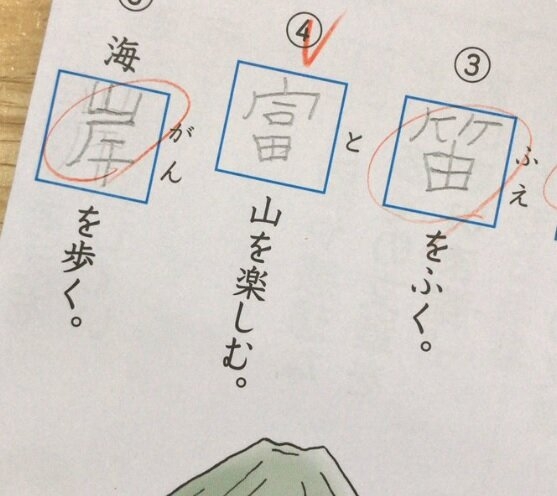 ③
笛をふく。
ふえ
④
富山を楽しむ。
と
海岸を歩く。
がん